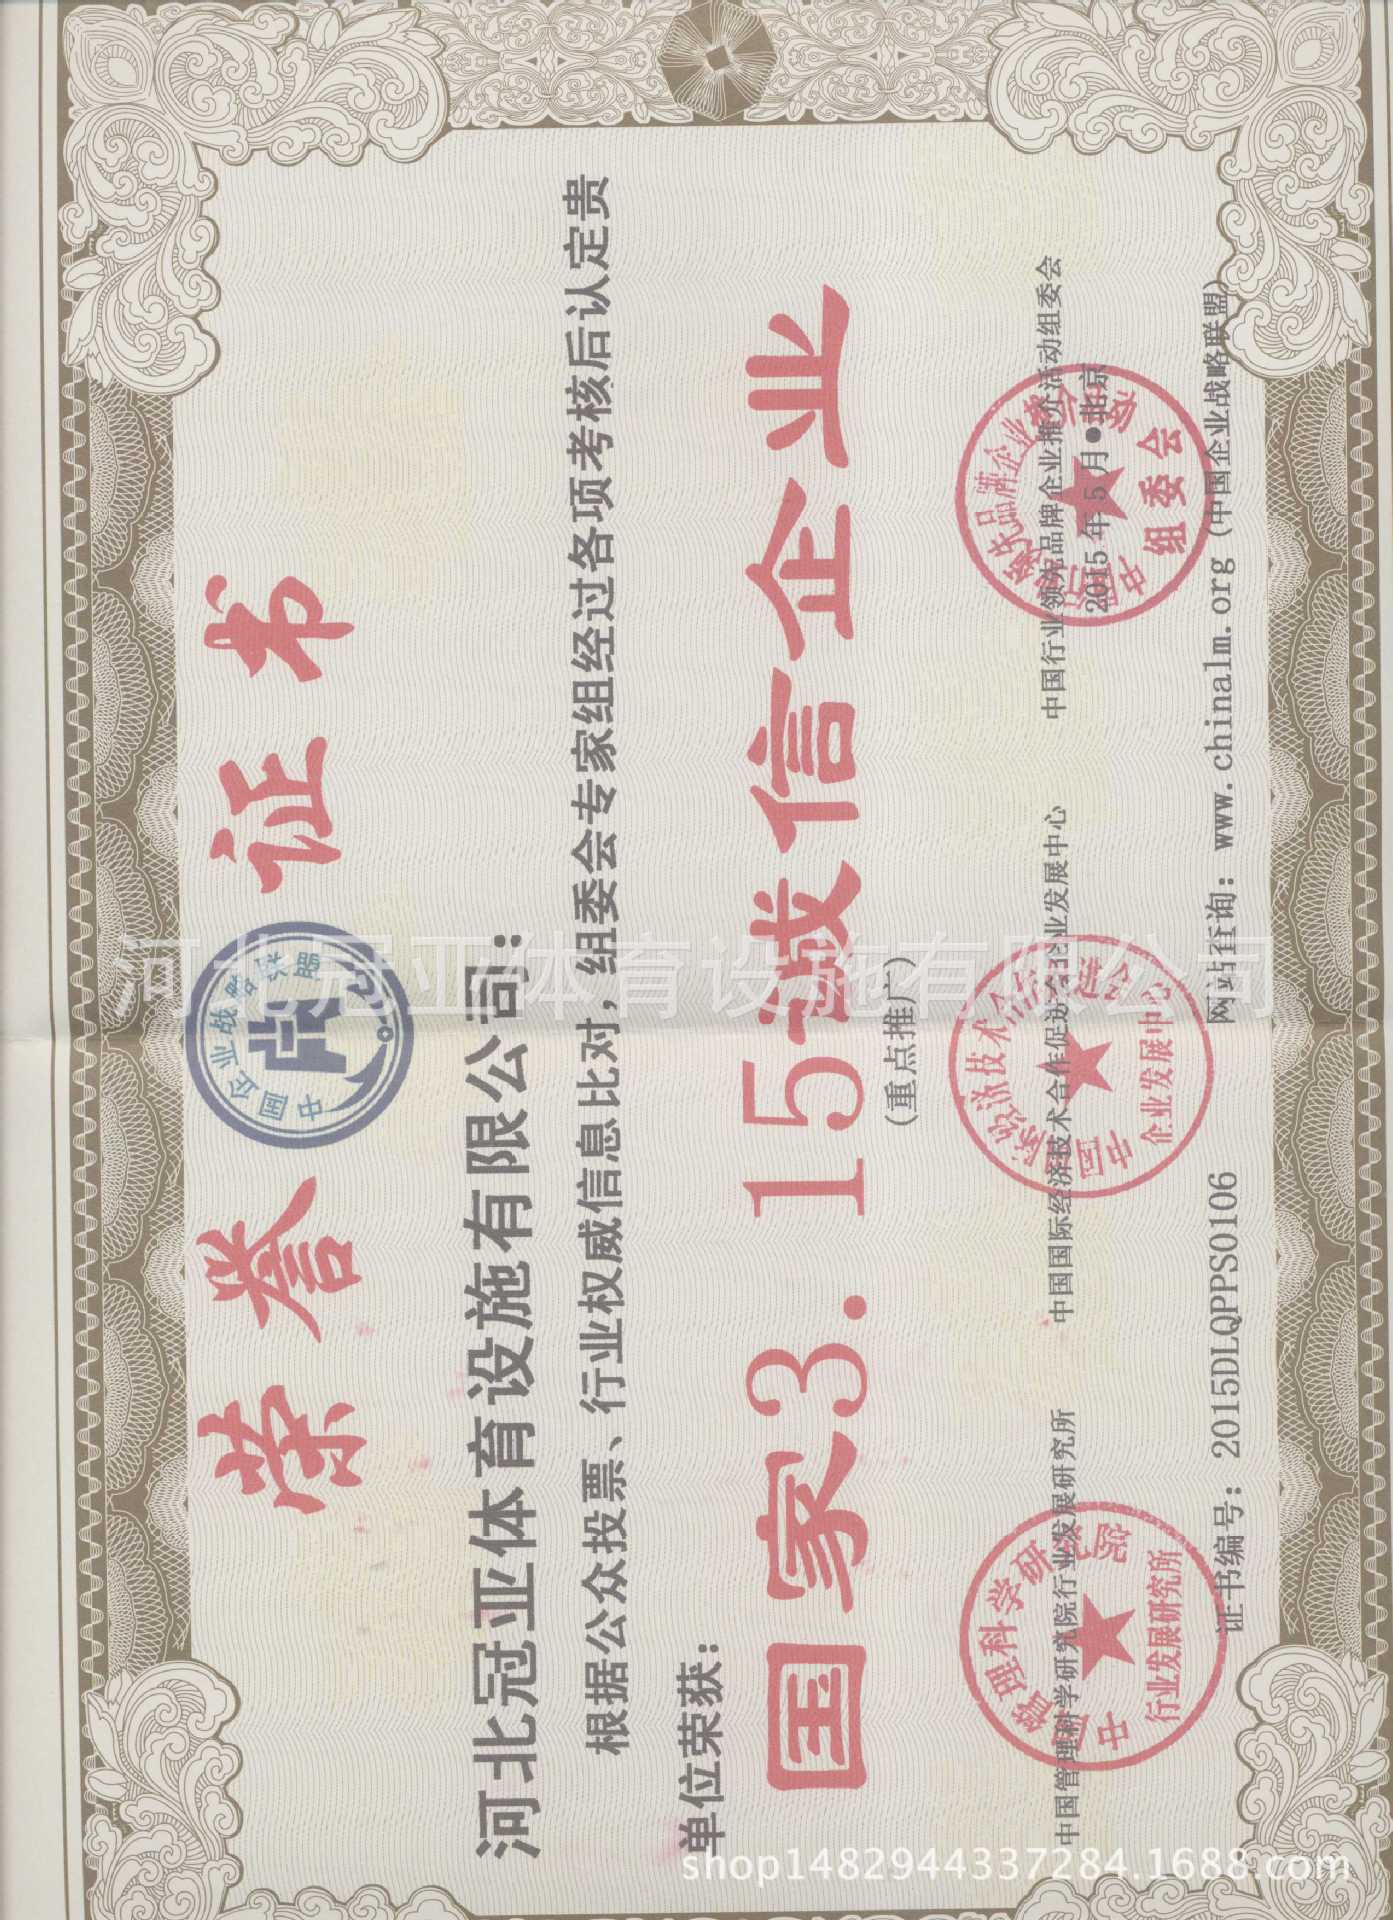 荣誉证书
中国企业战略联盟
河北冠亚体育设施有限公司:
根据公众投票、行业权威信息比对，组委会专家组经过各项考核后认定贵
单位荣获:
国家3.15诚信企业
(重点推广)
中国管理科学研究院行业发展研究所
中国国际经济技术合作促进会企业发展中心
中国行业领先品牌企业推介活动组委会
2015年5月•北京
中国管理科学研究院
行业发展研究所
中国国际经济技术合作促进会
企业发展中心
组委会
证书编号: 2015DLQPPS0106
网站查询: www.chinalm.org (中国企业战略联盟)
河北冠亚体育设施有限公司
shop1482944337284.1688.com